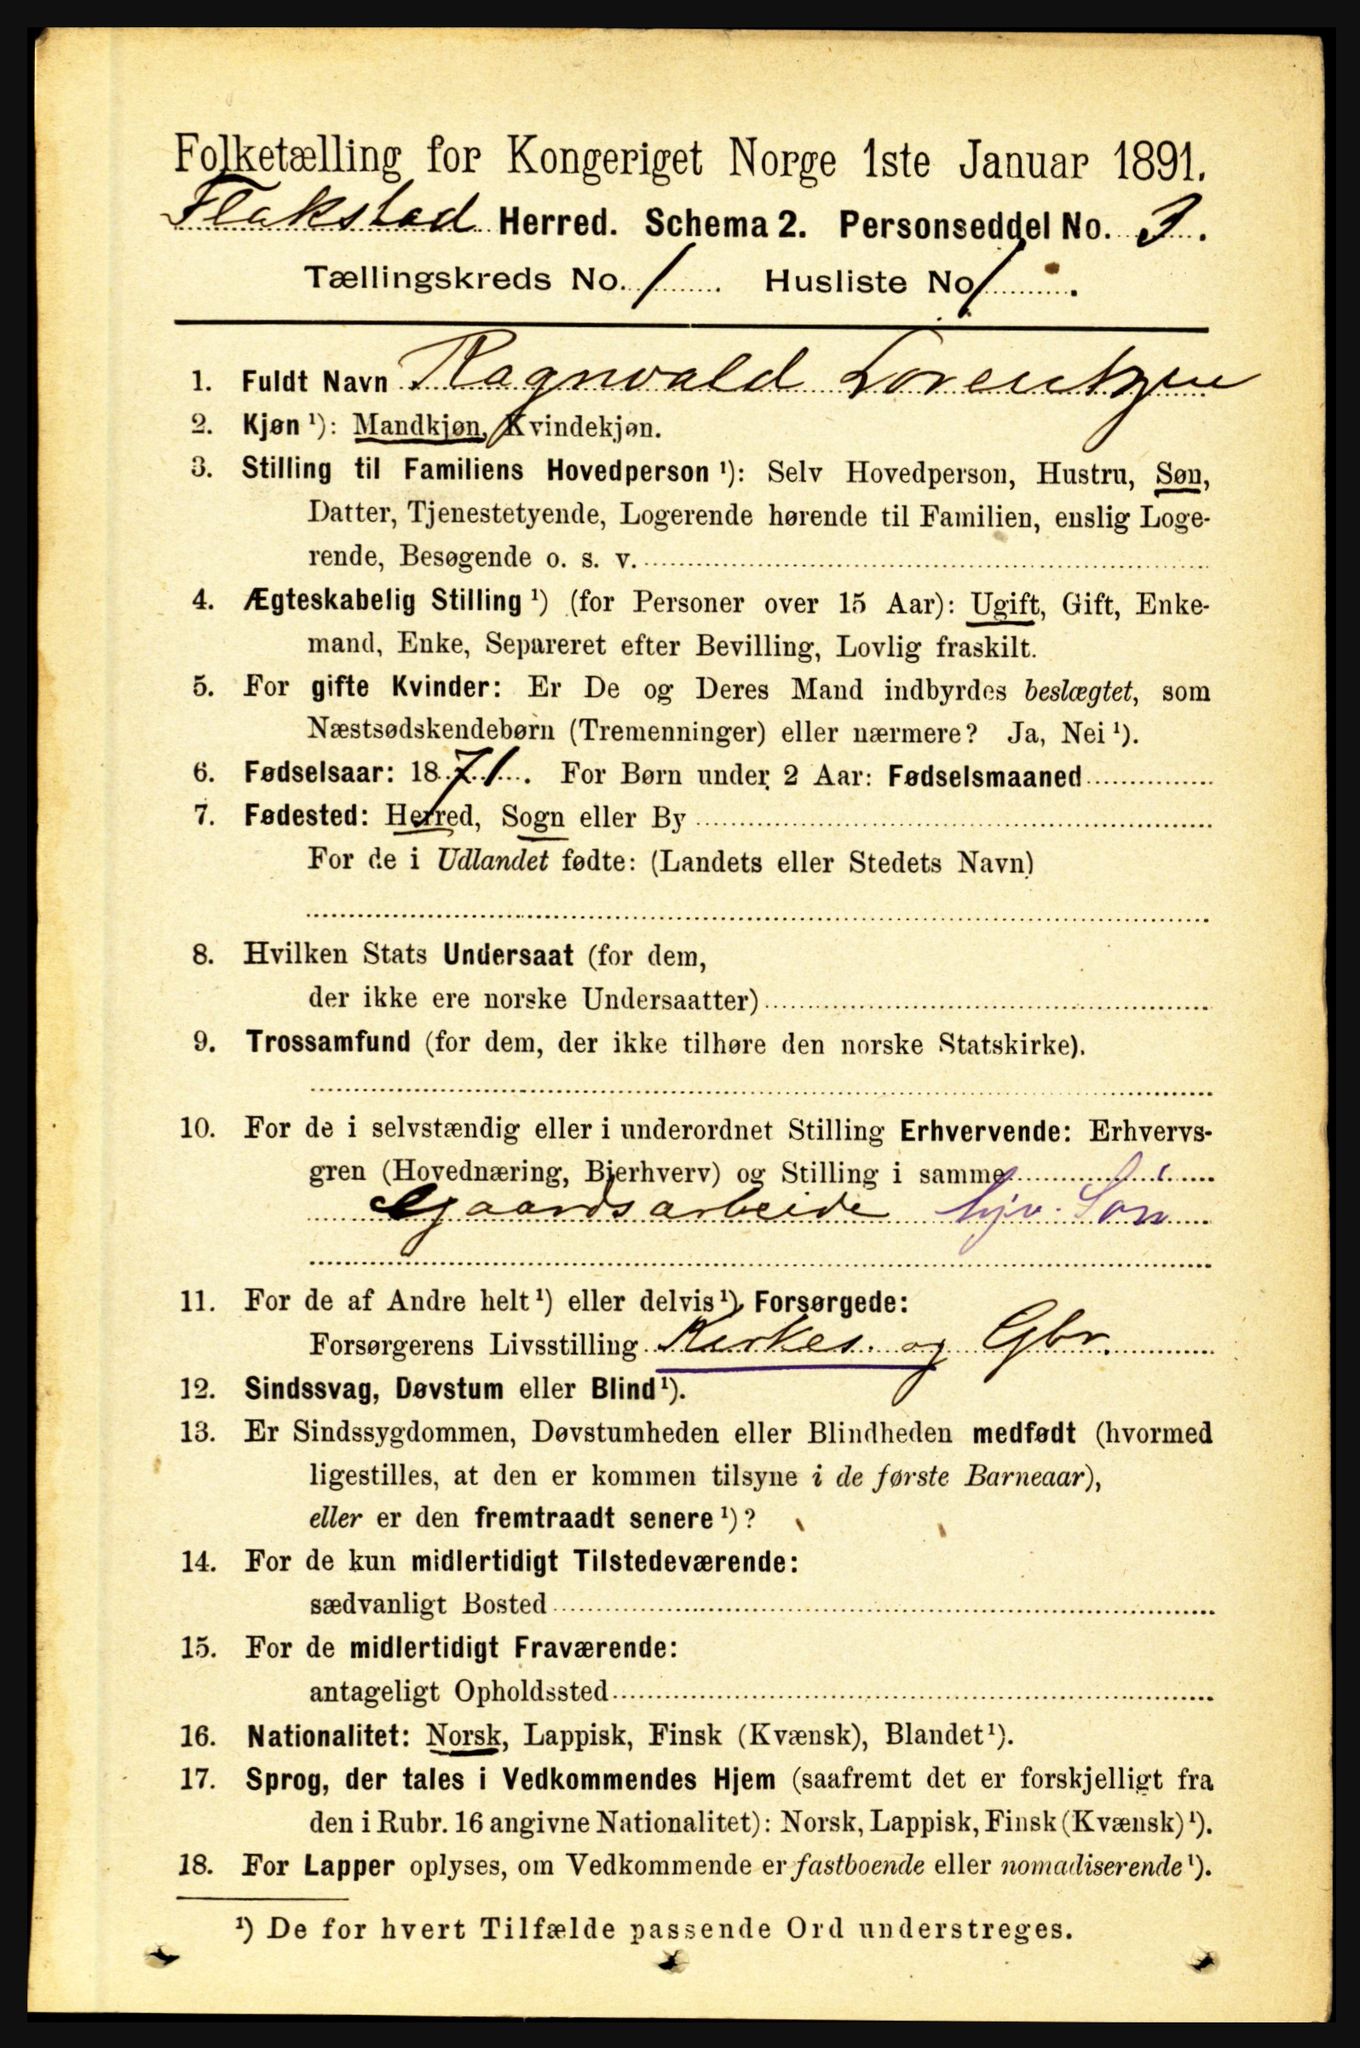 Folketælling for Kongeriget Norge 1ste Januar 1891.
Flakstad Herred. Schema 2. Personseddel No. 3.
Tællingskreds No. 1 Husliste No 1.
1. Fuldt Navn Ragnvald Lorentzen
2. Kjøn ¹): Mandkjøn, Kvindekjøn.
3. Stilling til Familiens Hovedperson ¹): Selv Hovedperson, Hustru, Søn,
Datter, Tjenestetyende, Logerende hørende til Familien, enslig Loge-
rende, Besøgende o. s. v.
4. Ægteskabelig Stilling ¹) (for Personer over 15 Aar): Ugift, Gift, Enke-
mand, Enke, Separeret efter Bevilling, Lovlig fraskilt.
5. For gifte Kvinder: Er De og Deres Mand indbyrdes beslægtet, som
Næstsødskendebørn (Tremenninger) eller nærmere? Ja, Nei ¹).
6. Fødselsaar: 1871. For Børn under 2 Aar: Fødselsmaaned
7. Fødested: Herred, Sogn eller By
For de i Udlandet fødte: (Landets eller Stedets Navn)
8. Hvilken Stats Undersaat (for dem,
der ikke ere norske Undersaatter)
9. Trossamfund (for dem, der ikke tilhøre den norske Statskirke).
10. For de i selvstændig eller i underordnet Stilling Erhvervende: Erhvervs-
gren (Hovednæring, Bierhverv) og Stilling i samme
Gaardsarbeide hjv. Søn
11. For de af Andre helt ¹) eller delvis ¹) Forsørgede:
Forsørgerens Livsstilling Kirkes. og Gbr.
12. Sindssvag, Døvstum eller Blind ¹).
13. Er Sindssygdommen, Døvstumheden eller Blindheden medfødt (hvormed
ligestilles, at den er kommen tilsyne i de første Barneaar),
eller er den fremtraadt senere ¹)?
14. For de kun midlertidigt Tilstedeværende:
sædvanligt Bosted
15. For de midlertidigt Fraværende:
antageligt Opholdssted
16. Nationalitet: Norsk, Lappisk, Finsk (Kvænsk), Blandet ¹).
17. Sprog, der tales i Vedkommendes Hjem (saafremt det er forskjelligt fra
den i Rubr. 16 angivne Nationalitet): Norsk, Lappisk, Finsk (Kvænsk) ¹).
18. For Lapper oplyses, om Vedkommende er fastboende eller nomadiserende ¹).
¹) De for hvert Tilfælde passende Ord understreges.